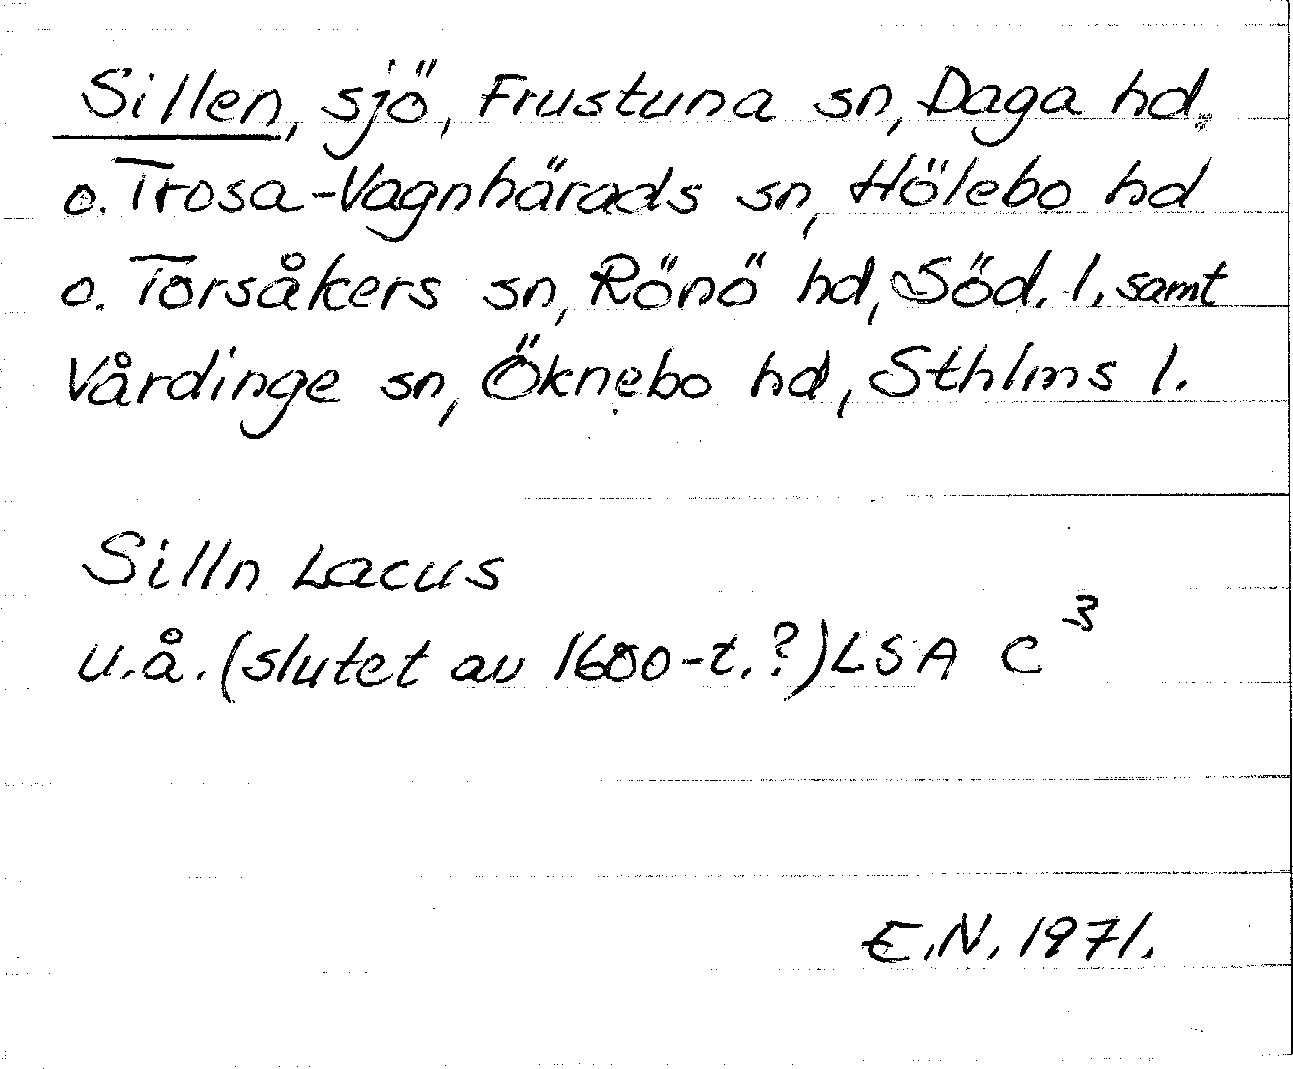 Sillen, sjö, Frustuna sn, Daga hd.
o. Trosa-Vagnhärads sn, Hölebo hd
o. Torsåkers sn, Rönö hd, Söd. l. samt
Vårdinge sn, Öknebo hd, Sthlms l.
Silln Lacus
u.å. (slutet av 1600-t.?) LSA C³
E.N. 1971.